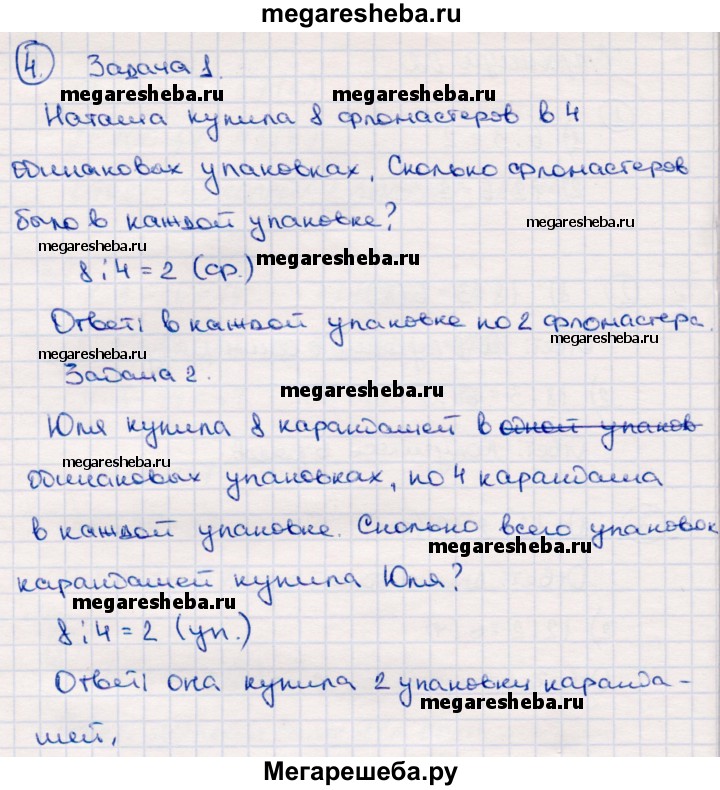 megaresheba.ru
4. Задача 1.
megaresheba.ru megaresheba.ru
Наташа купила 8 фломастеров в 4
одинаковых упаковках. Сколько фломастеров
было в каждой упаковке?
megaresheba.ru
megaresheba.ru
8:4=2 (ф.)
megaresheba.ru
Ответ: в каждой упаковке по 2 фломастера.
megaresheba.ru
megaresheba.ru
Задача 2.
megaresheba.ru
Юля купила 8 карандашей в одной упаков
megaresheba.ru
одинаковых упаковках, по 4 карандаша
в каждой упаковке. Сколько всего упаковок
megaresheba.ru
карандашей купила Юля?
megaresheba.ru
8:4=2 (уп.)
Ответ: она купила 2 упаковки каранда-
megaresheba.ru
шей.
Мегарешеба.ру